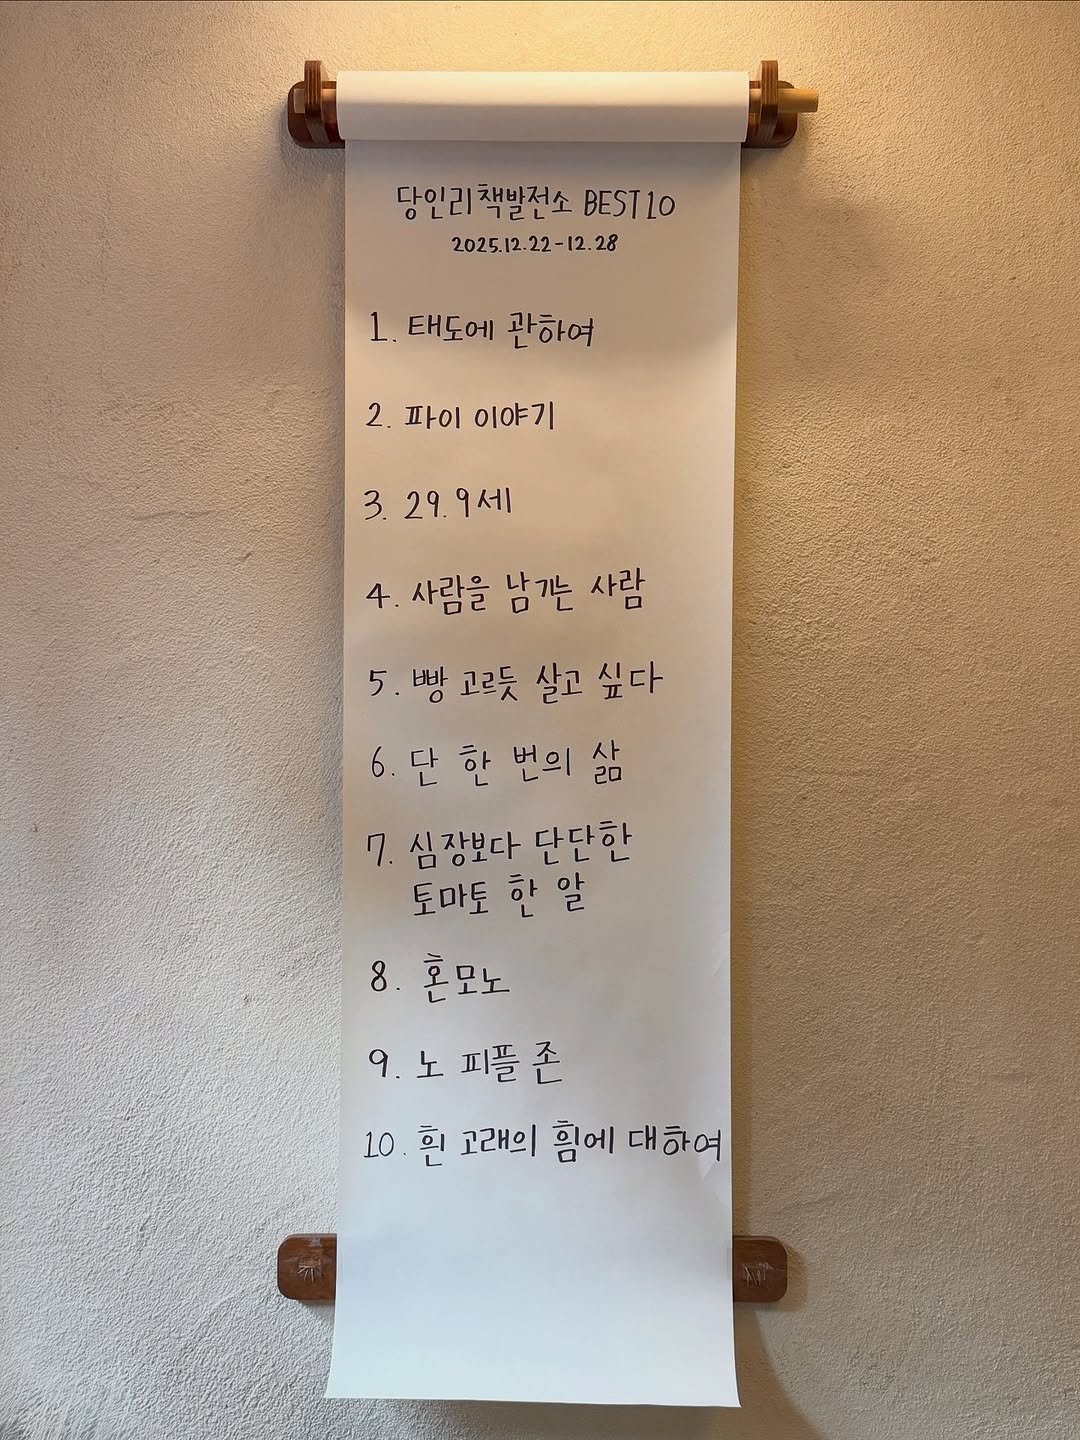 당인리책발전소 BEST10
2025.12.22-12.28
1. 태도에 관하여
2. 파이 이야기
3. 29.9세
4. 사람을 남기는 사람
5. 빵 고르듯 살고 싶다
6. 단 한 번의 삶
7. 심장보다 단단한
토마토 한 알
8. 혼모노
9. 노 피플 존
10. 흰 고래의 흼에 대하여